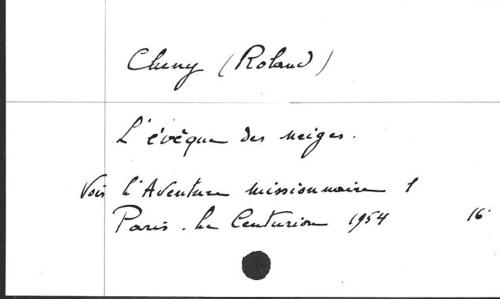 Cheny (Roland)
L'évêque des neiges.
Voir l'Aventure missionnaire 1
Paris. Le Centurion 1954 16